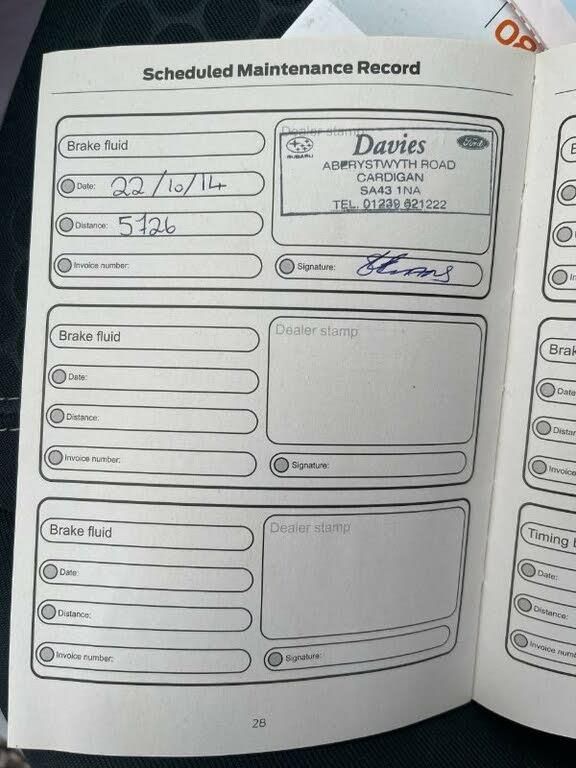 80
Scheduled Maintenance Record
Brake fluid
Date: 22/10/14
Distance: 5726
Invoice number:
Dealer stamp
SUBARU
Davies
Ford
ABERYSTWYTH ROAD
CARDIGAN
SA43 1NA
TEL. 01239 621222
Signature:
Brake fluid
Date:
Distance:
Invoice number:
Dealer stamp
Signature:
Brake fluid
Date:
Distance:
Invoice number:
Dealer stamp
Signature:
28
Date:
Invoice
Timing
Date:
Distance: